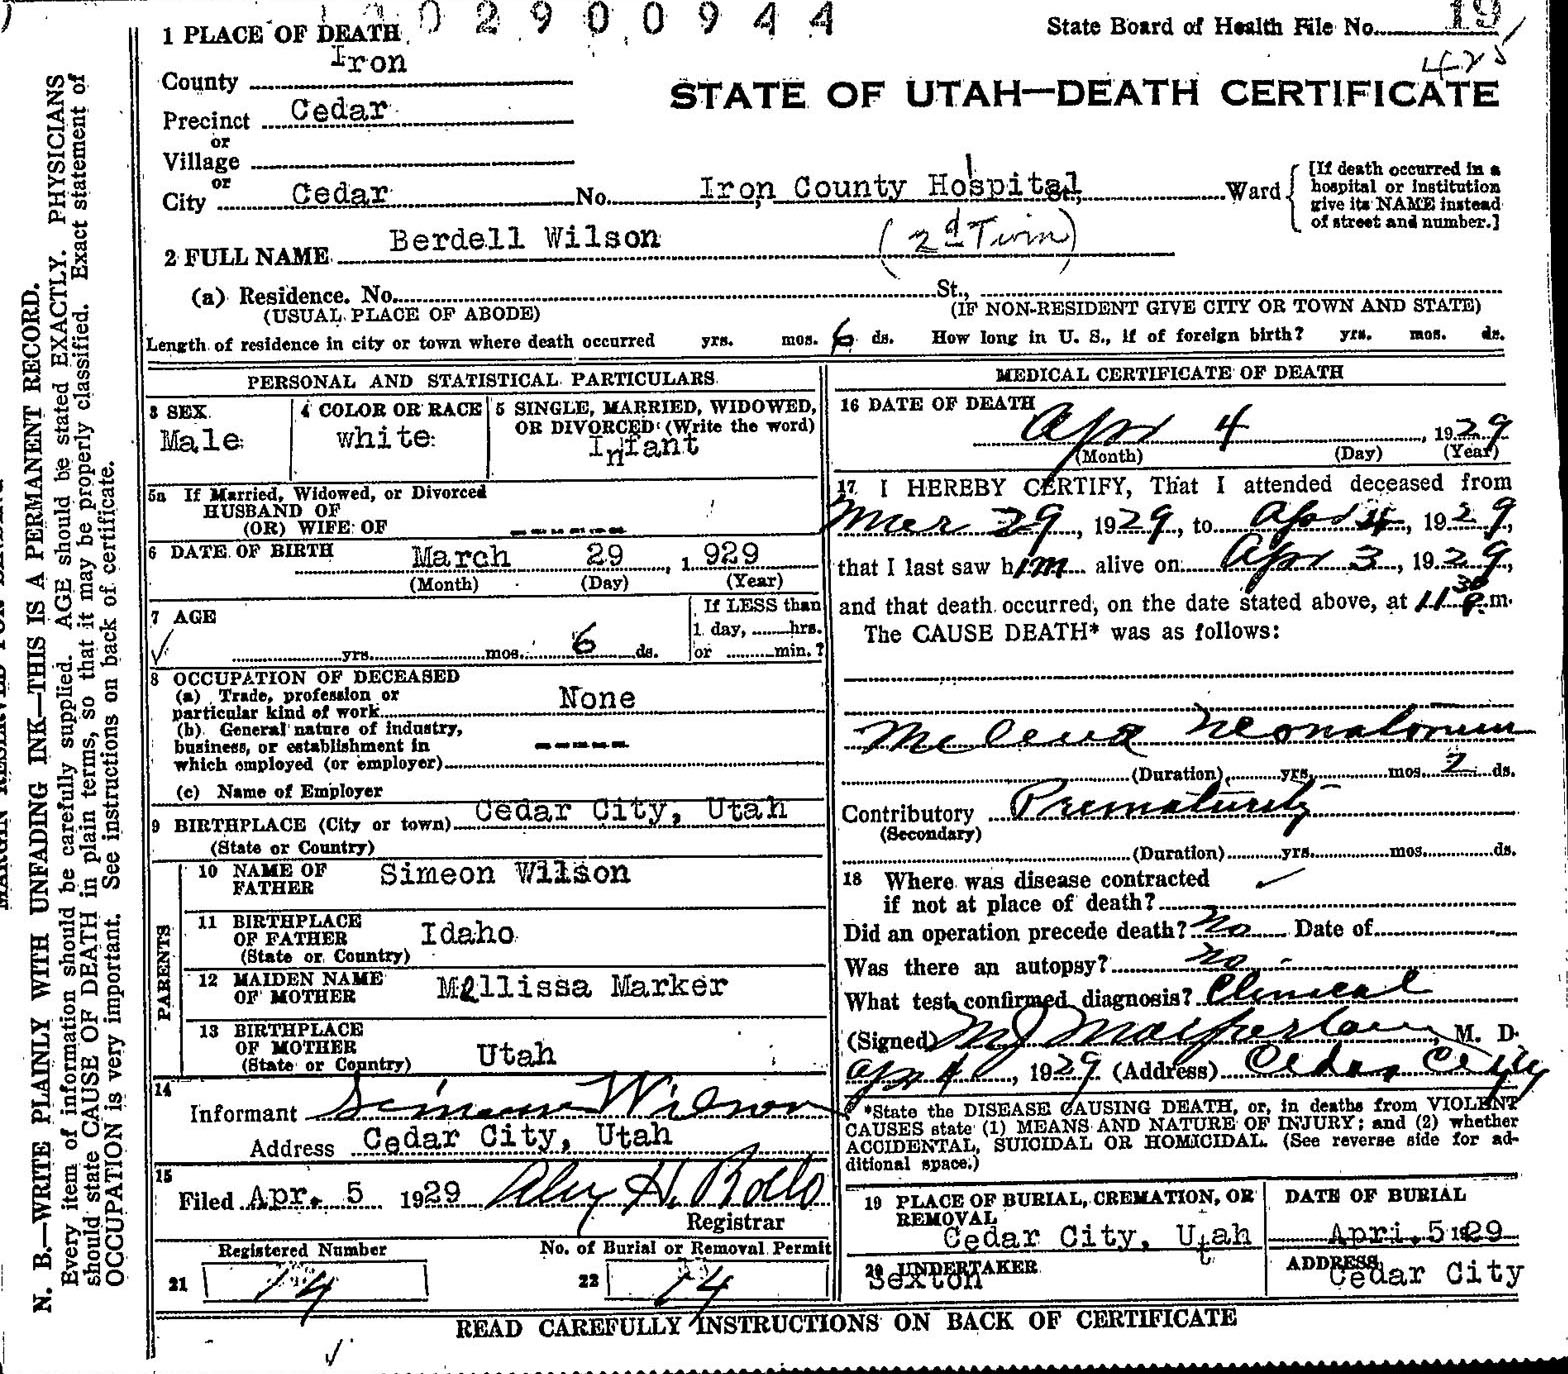 2 9 0 0 9 4 4
State Board of Health File No. 19
425
1 PLACE OF DEATH
County Iron
STATE OF UTAH—DEATH CERTIFICATE
Precinct Cedar
or
Village
or
City Cedar No. Iron County Hospital St., Ward
[If death occurred in a
hospital or institution
give its NAME instead
of street and number.]
2 FULL NAME Berdell Wilson (2d Twin)
(a) Residence. No. St.,
(USUAL PLACE OF ABODE) (IF NON-RESIDENT GIVE CITY OR TOWN AND STATE)
Length of residence in city or town where death occurred yrs. mos. 6 ds. How long in U. S., if of foreign birth? yrs. mos. ds.
PERSONAL AND STATISTICAL PARTICULARS
3 SEX
Male
4 COLOR OR RACE
white
5 SINGLE, MARRIED, WIDOWED,
OR DIVORCED (Write the word)
Infant
5a If Married, Widowed, or Divorced
HUSBAND OF
(OR) WIFE OF ----
6 DATE OF BIRTH March 29, 1929
(Month) (Day) (Year)
7 AGE
yrs. mos. 6 ds.
If LESS than
1 day, hrs.
or min.?
8 OCCUPATION OF DECEASED
(a) Trade, profession or
particular kind of work None
(b) General nature of industry,
business, or establishment in
which employed (or employer) ----
(c) Name of Employer
9 BIRTHPLACE (City or town) Cedar City, Utah
(State or Country)
PARENTS
10 NAME OF
FATHER Simeon Wilson
11 BIRTHPLACE
OF FATHER Idaho
(State or Country)
12 MAIDEN NAME
OF MOTHER Mellissa Marker
13 BIRTHPLACE
OF MOTHER
(State or Country) Utah
14
Informant Simeon Wilson
Address Cedar City, Utah
15
Filed Apr. 5 1929 Alex H. Rollo
Registrar
Registered Number No. of Burial or Removal Permit
21 14 22 14
MEDICAL CERTIFICATE OF DEATH
16 DATE OF DEATH
Apr 4, 1929
(Month) (Day) (Year)
17 I HEREBY CERTIFY, That I attended deceased from
Mar 29, 1929, to Apr 4, 1929,
that I last saw him alive on Apr 3, 1929,
and that death occurred, on the date stated above, at 11 30 P.m.
The CAUSE DEATH* was as follows:
Melena Neonatorum
(Duration) yrs. mos. 2 ds.
Contributory Prematurity
(Secondary)
(Duration) yrs. mos. ds.
18 Where was disease contracted
if not at place of death?
Did an operation precede death? No Date of
Was there an autopsy? no
What test confirmed diagnosis? Clinical
(Signed) M J Macfarlane, M. D.
Apr 4, 1929 (Address) Cedar City
*State the DISEASE CAUSING DEATH, or, in deaths from VIOLENT
CAUSES state (1) MEANS AND NATURE OF INJURY; and (2) whether
ACCIDENTAL, SUICIDAL OR HOMICIDAL. (See reverse side for ad-
ditional space.)
19 PLACE OF BURIAL, CREMATION, OR
REMOVAL
Cedar City, Utah
DATE OF BURIAL
April 5 1929
20 UNDERTAKER
Sexton
ADDRESS
Cedar City
READ CAREFULLY INSTRUCTIONS ON BACK OF CERTIFICATE
N. B.—WRITE PLAINLY WITH UNFADING INK—THIS IS A PERMANENT RECORD.
Every item of information should be carefully supplied. AGE should be stated EXACTLY. PHYSICIANS
should state CAUSE OF DEATH in plain terms, so that it may be properly classified. Exact statement of
OCCUPATION is very important. See instructions on back of certificate.